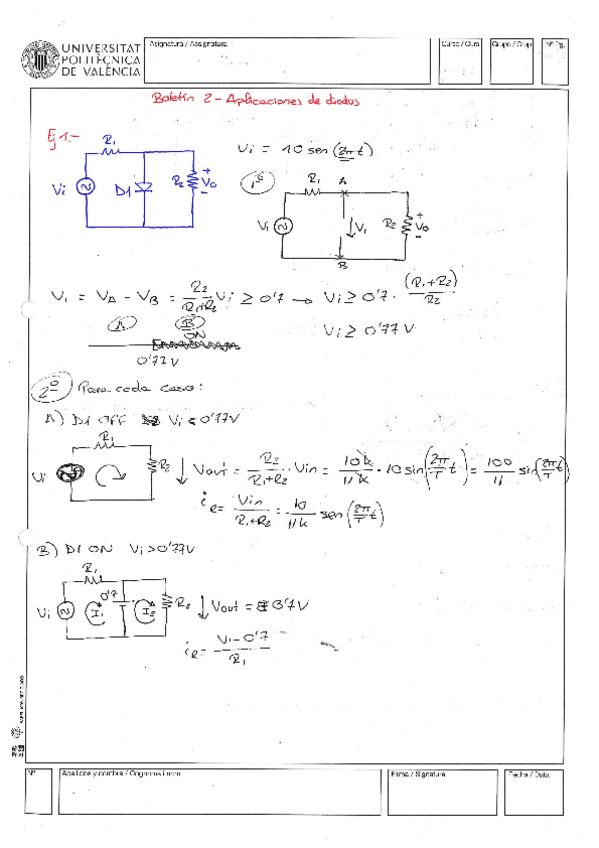 UNIVERSITAT
POLITÈCNICA
DE VALÈNCIA
Asignatura / Assignatura
Curso / Curs
Grupo / Grup
Nº Pg.
Boletín 2 - Aplicaciones de diodos
Ej 1.-
R1
Vi
D1
R2
+
Vo
-
Vi = 10 sen (2π t)
1º
R1
A
Vi
V1
R2
+
Vo
-
B
V1 = VA - VB = R2/(R1+R2) Vi ≥ 0'7 → Vi ≥ 0'7 · (R1+R2)/R2
A B
ON
0'77V
Vi ≥ 0'77V
2º Para cada caso:
A) D1 OFF Vi < 0'77V
R1
Vi
R2
Vout = R2/(R1+R2) · Vin = 10k/11k · 10 sin(2π/T t) = 100/11 sin(2π/T t)
iR = Vin/(R1+R2) = 10/11k sen(2π/T t)
B) D1 ON Vi > 0'77V
R1
Vi
I1
0'7
I2
R2
Vout = 0'7V
iR = (Vi - 0'7)/R1
Nº
Apellidos y nombre / Cognoms i nom
Firma / Signatura
Fecha / Data